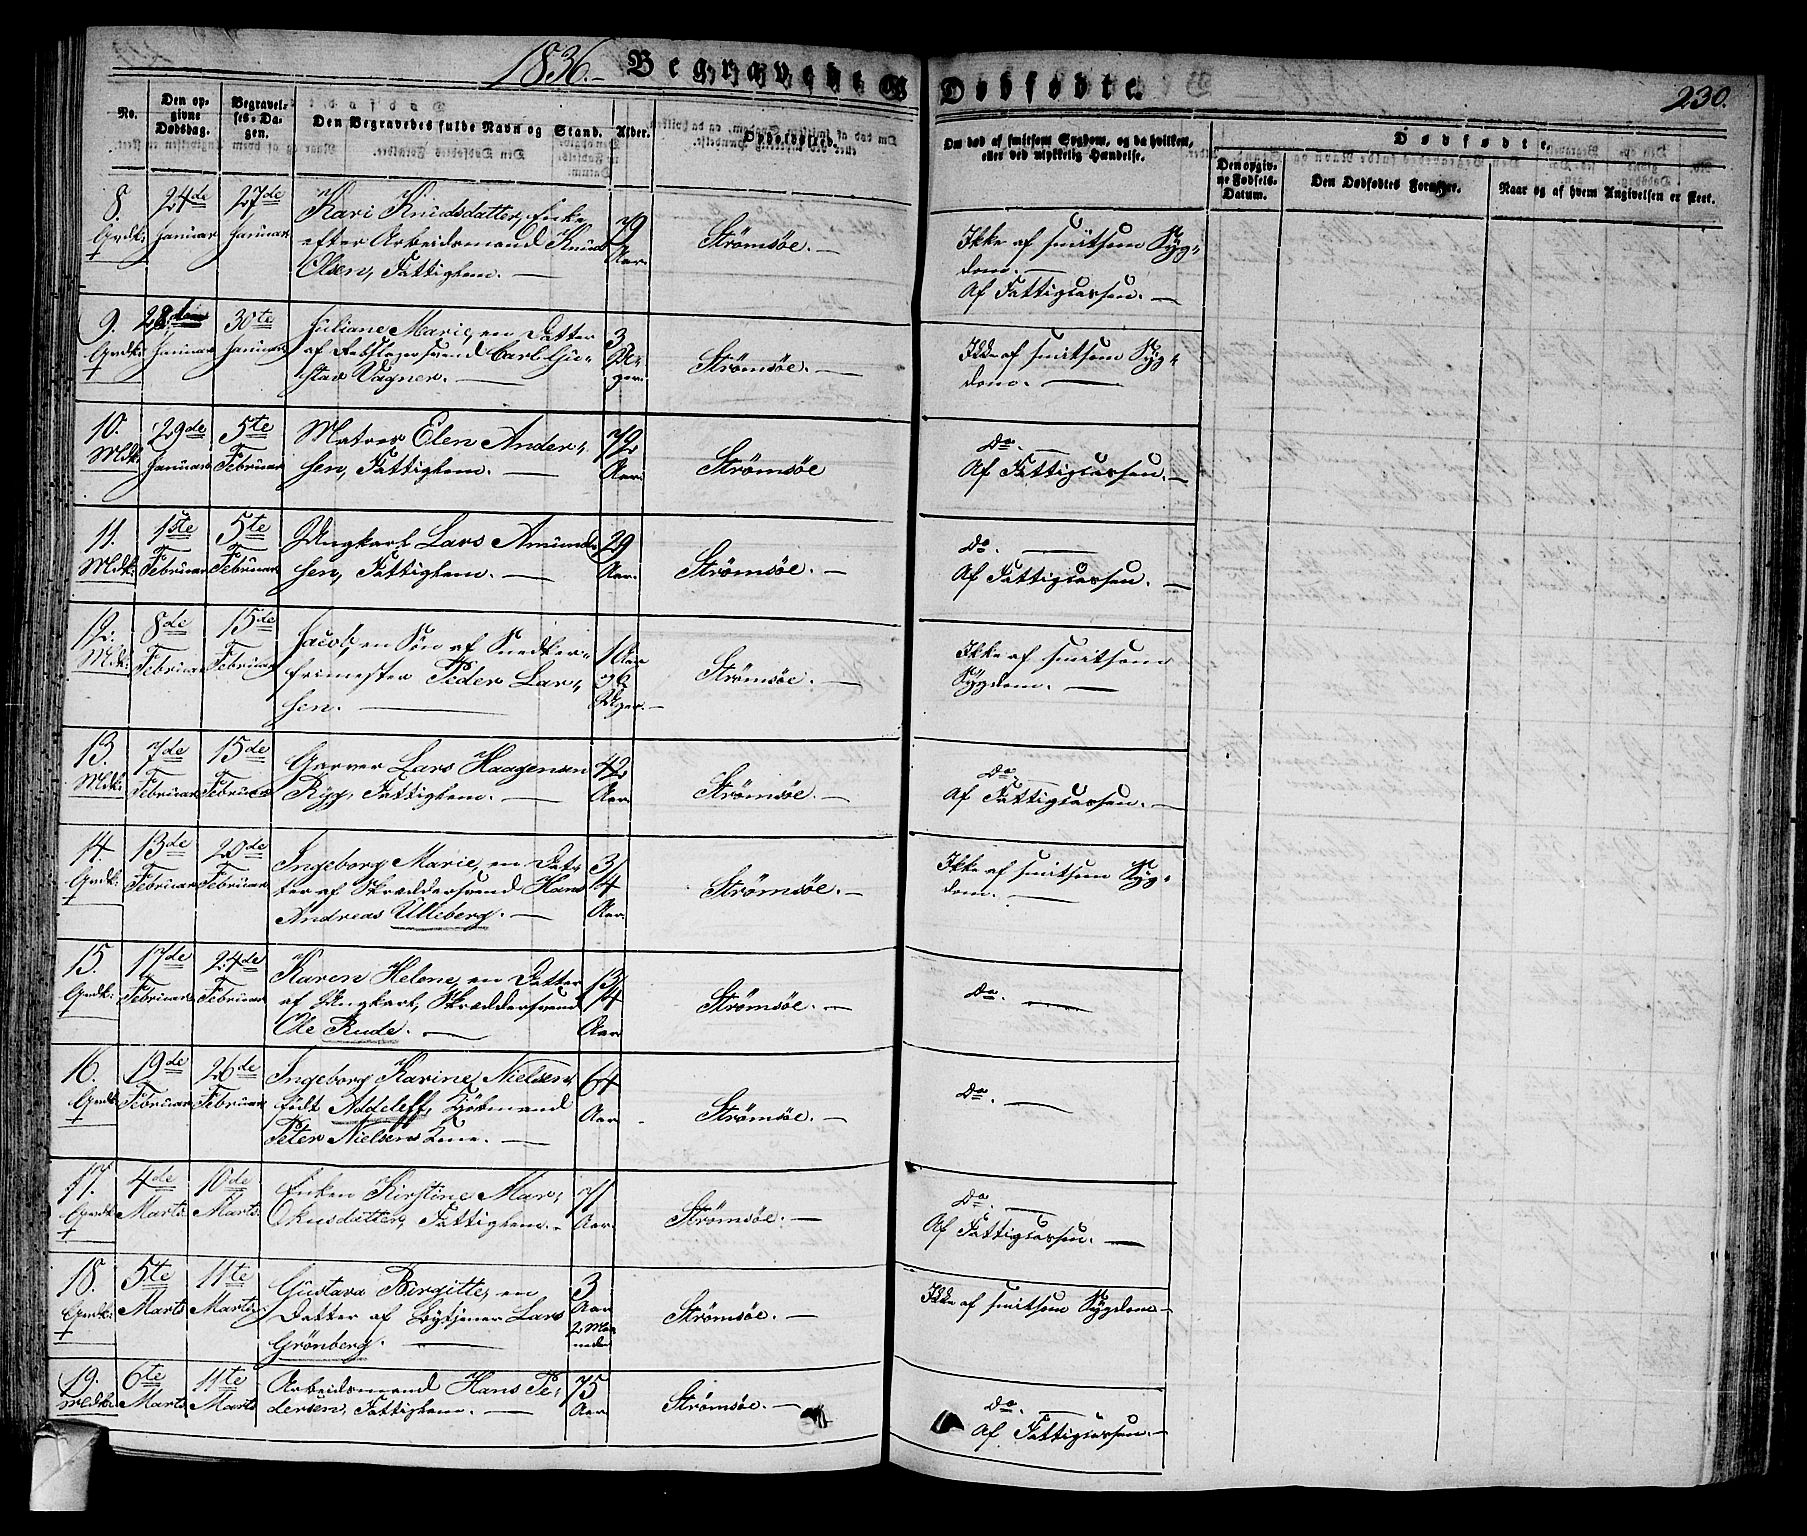 1836.- Begravede & Dødfødte. 230.
No.
Den opgivne Dødsdag.
Begravelses-Dagen.
Den Begravedes fulde Navn og Stand.
Alder.
Dødssted.
Om død af smitsom Sygdom, og da hvilken,
eller ved ulykkelig Hændelse.
Dødfødte.
Den opgivne Fødsels-Datum.
Den Dødfødtes Forældre.
Naar og af hvem Angivelsen er skeet.
8. 24de 27de Kari Knudsdatter, Enke 79
Januar Januar efter Arbeidsmand Knud Aar. Strømsøe. — Ikke af smitsom Syg-
Olsen, Fattiglem. — dom. —
Af Fattigcassen. —
9. 28de 30te Juliane Marie, en Datter 3
Januar Januar af Rebslagersvend Carl Gu- Uger. Strømsøe. — Ikke af smitsom Syg-
stav Vagner. — dom. —
10. 29de 5te Matros Elen Ander- 72
Mdk: Januar Februar sen, Fattiglem. — Aar. Strømsøe Do.
Af Fattigcassen. —
11. 1ste 5te Ungkarl Lars Amund- 29
Mdk: Februar Februar sen, Fattiglem. — Aar. Strømsøe. — Do. —
Af Fattigcassen. —
12. 8de 15de Jacob, en Søn af Snedker- 1 Aar
Mdk: Februar Februar frimester Peder Lar- og 6 Strømsøe. — Ikke af smitsom
sen. — Uger. — Sygdom. —
13. 7de 15de Garver Lars Haagensen 42
Mdk: Februar Februar Ryg, Fattiglem. — Aar. Strømsøe. — Do.
Af Fattigcassen. —
14. 13de 20de Ingeborg Marie, en Dat- 3/4
Februar Februar ter af Skræddersvend Hans Aar. Strømsøe. — Ikke af smitsom Syg-
Andreas Ulleberg. — dom. —
15. 17de 24de Karen Helene, en Datter 13/14
Februar Februar af Ungkarl, Skræddersvend Aar Strømsøe. — Do. —
Ole Rude. —
16. 19de 26de Ingeborg Karine Nielsen, 64
Februar Februar født Addeleff, Kjøbmand Aar. Strømsøe. — Do. —
Peter Nielsens Kone. —
17. 4de 10de Enken Kirstine Mar- 71
Marts Marts. Fattiglem. - Aar. Strømsøe. — Do. —
Af Fattigcassen. —
18. 5te 11te Gustava Birgitte, en 3
Marts Marts. Datter af Lars Aar 2 Maaneder Strømsøe. — Ikke af smitsom Sygdom —
Grønberg. —
19. 6te 11te Arbeidsmand Hans Pe- 75
Mdk: Marts Marts dersen, Fattiglem. — Aar Strømsøe. — Do. —
Af Fattigcassen. —